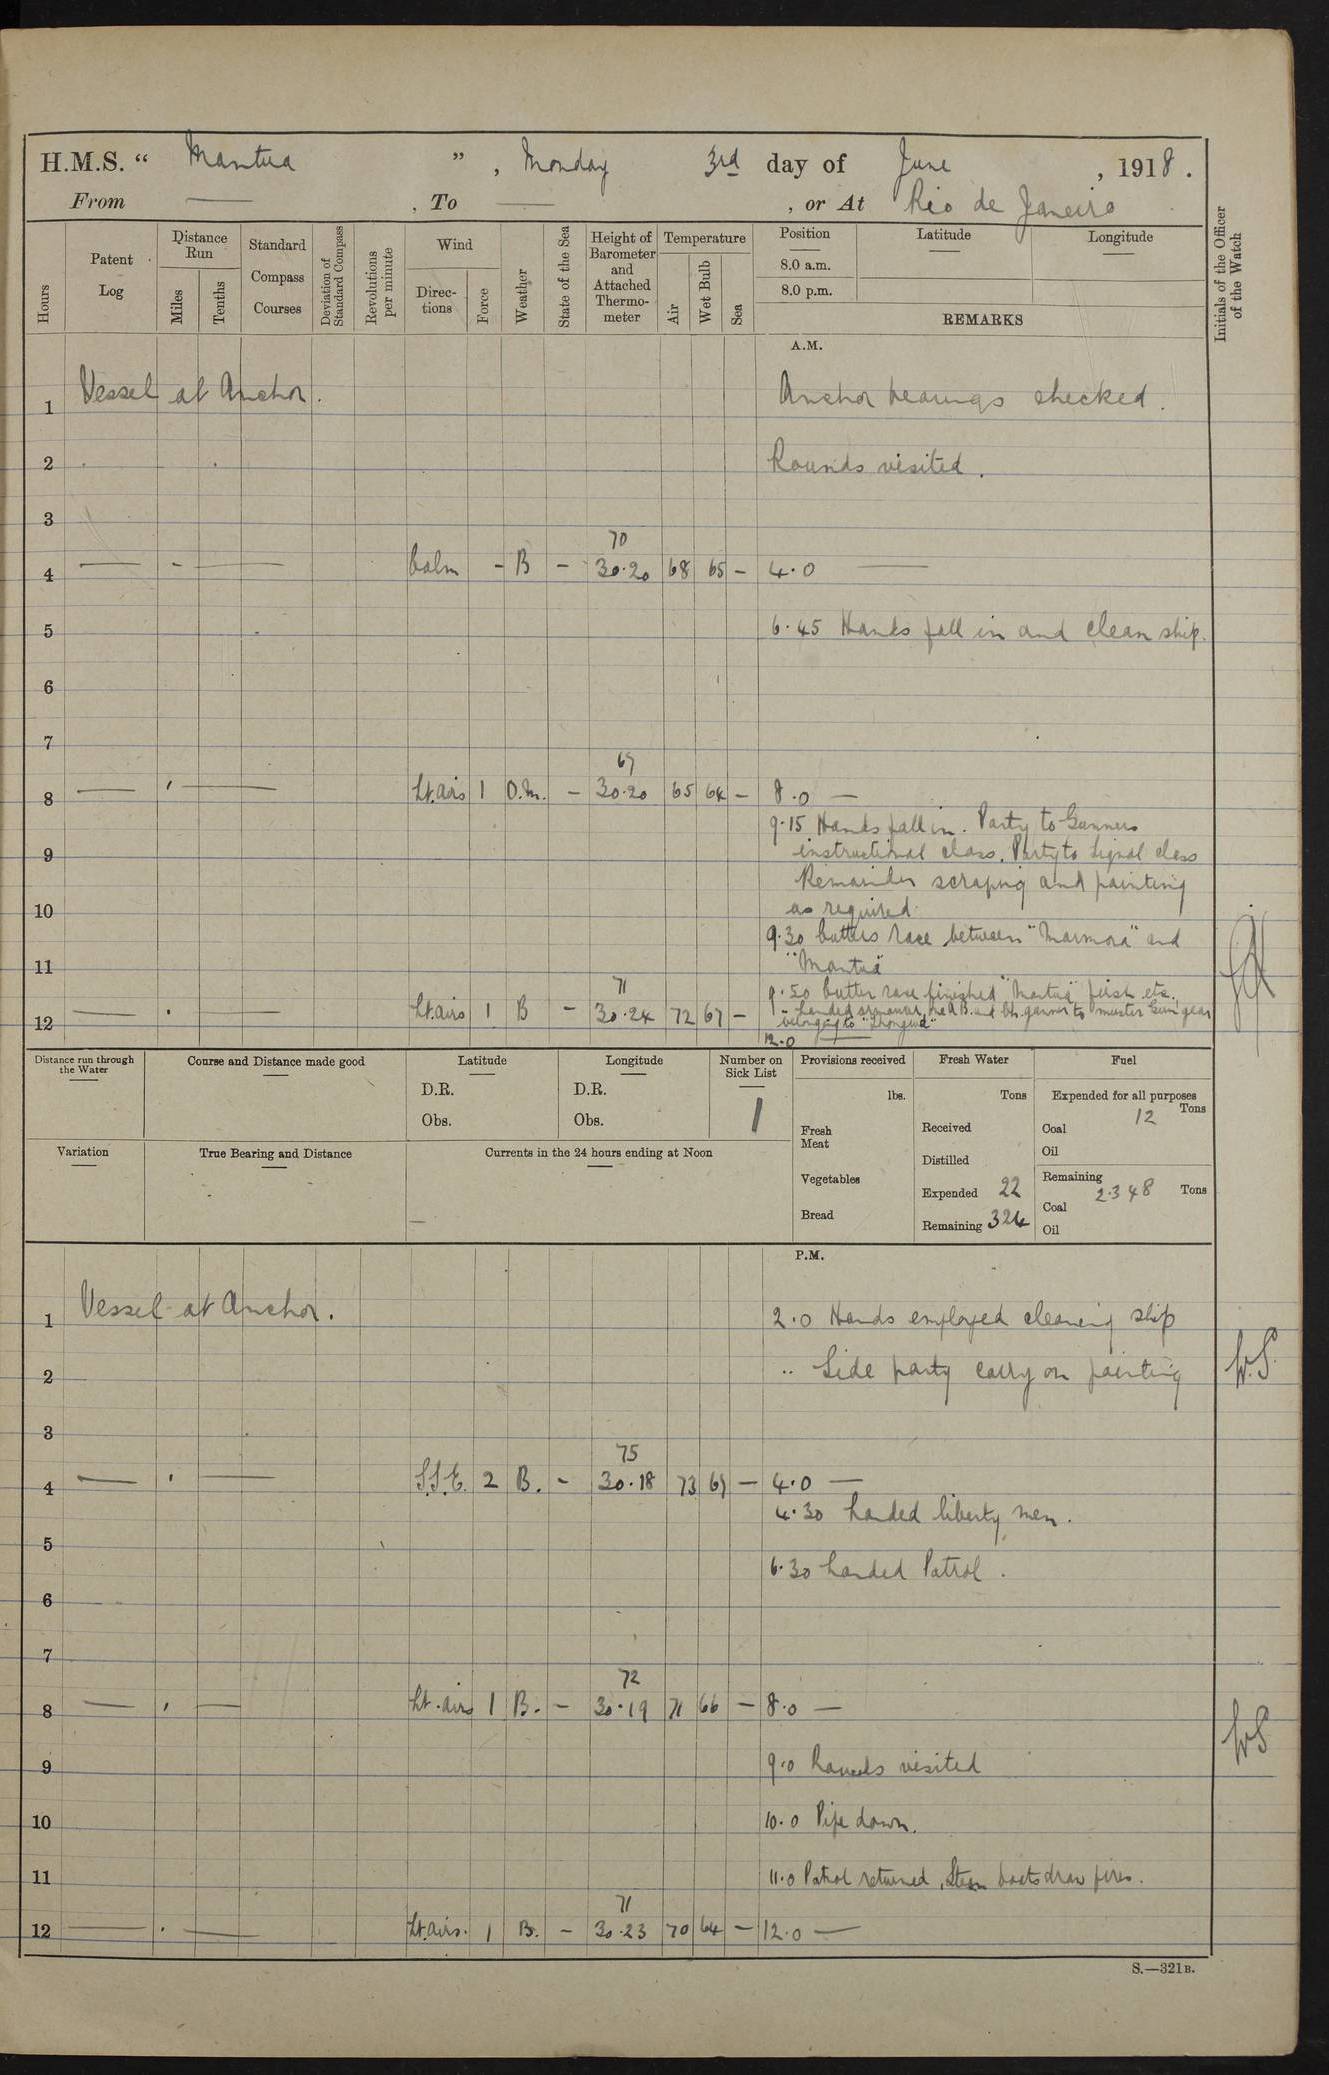 H.M.S. “ Mantua ” , Monday 3rd day of June , 1918 .
From — , To — , or At Rio de Janeiro
Hours
Patent Log
Distance Run
Miles
Tenths
Standard Compass Courses
Deviation of Standard Compass
Revolutions per minute
Wind
Direc- tions
Force
Weather
State of the Sea
Height of Barometer and Attached Thermo- meter
Temperature
Air
Wet Bulb
Sea
Position
8.0 a.m.
8.0 p.m.
Latitude
Longitude
REMARKS
Initials of the Officer of the Watch
A.M.
1 Vessel at Anchor. Anchor bearings checked.
2 Rounds visited.
3
70
4 — - — Calm - B - 30.20 68 65 - 4.0 —
5 6.45 Hands fall in and clean ship.
6
7
69
8 — — Lt. airs 1 O.M. - 30.20 65 64 - 8.0 —
9.15 Hands fall in. Party to Gunners
9 instructional class. Party to Signal class
Remainder scraping and painting
10 as required.
9.30 Cutters race between "Marmora" and
11 "Mantua"
71
9.50 Cutter race finished "Mantua" first etc.
12 — . — Lt. airs 1 B - 30.24 72 67 -
Landed armourer, one A.B. and Ch. gunner to muster Gun gear
belonging to
12.0 —
Distance run through the Water
Course and Distance made good
Latitude
D.R.
Obs.
Longitude
D.R.
Obs.
Number on Sick List
1
Provisions received
lbs.
Fresh Meat
Vegetables
Bread
Fresh Water
Tons
Received
Distilled
Expended 22
Remaining 324
Fuel
Expended for all purposes
Tons
Coal 12
Oil
Remaining
Coal 2348 Tons
Oil
Variation
True Bearing and Distance
Currents in the 24 hours ending at Noon
P.M.
1 Vessel at Anchor. 2.0 Hands employed cleaning ship
2 .. Side party carry on painting W.S.
3
75
4 — . — S.S.E. 2 B. - 30.18 73 69 — 4.0 —
4.30 Landed liberty men.
5
6.30 Landed Patrol.
6
7
72
8 — . — Lt. airs 1 B. - 30.19 71 66 — 8.0 —
WS
9 9.0 Rounds visited
10 10.0 Pipe down.
11 11.0 Patrol returned, Steam boats draw fires.
71
12 — . — Lt. airs. 1 B. - 30.23 70 64 — 12.0 —
S.—321B.